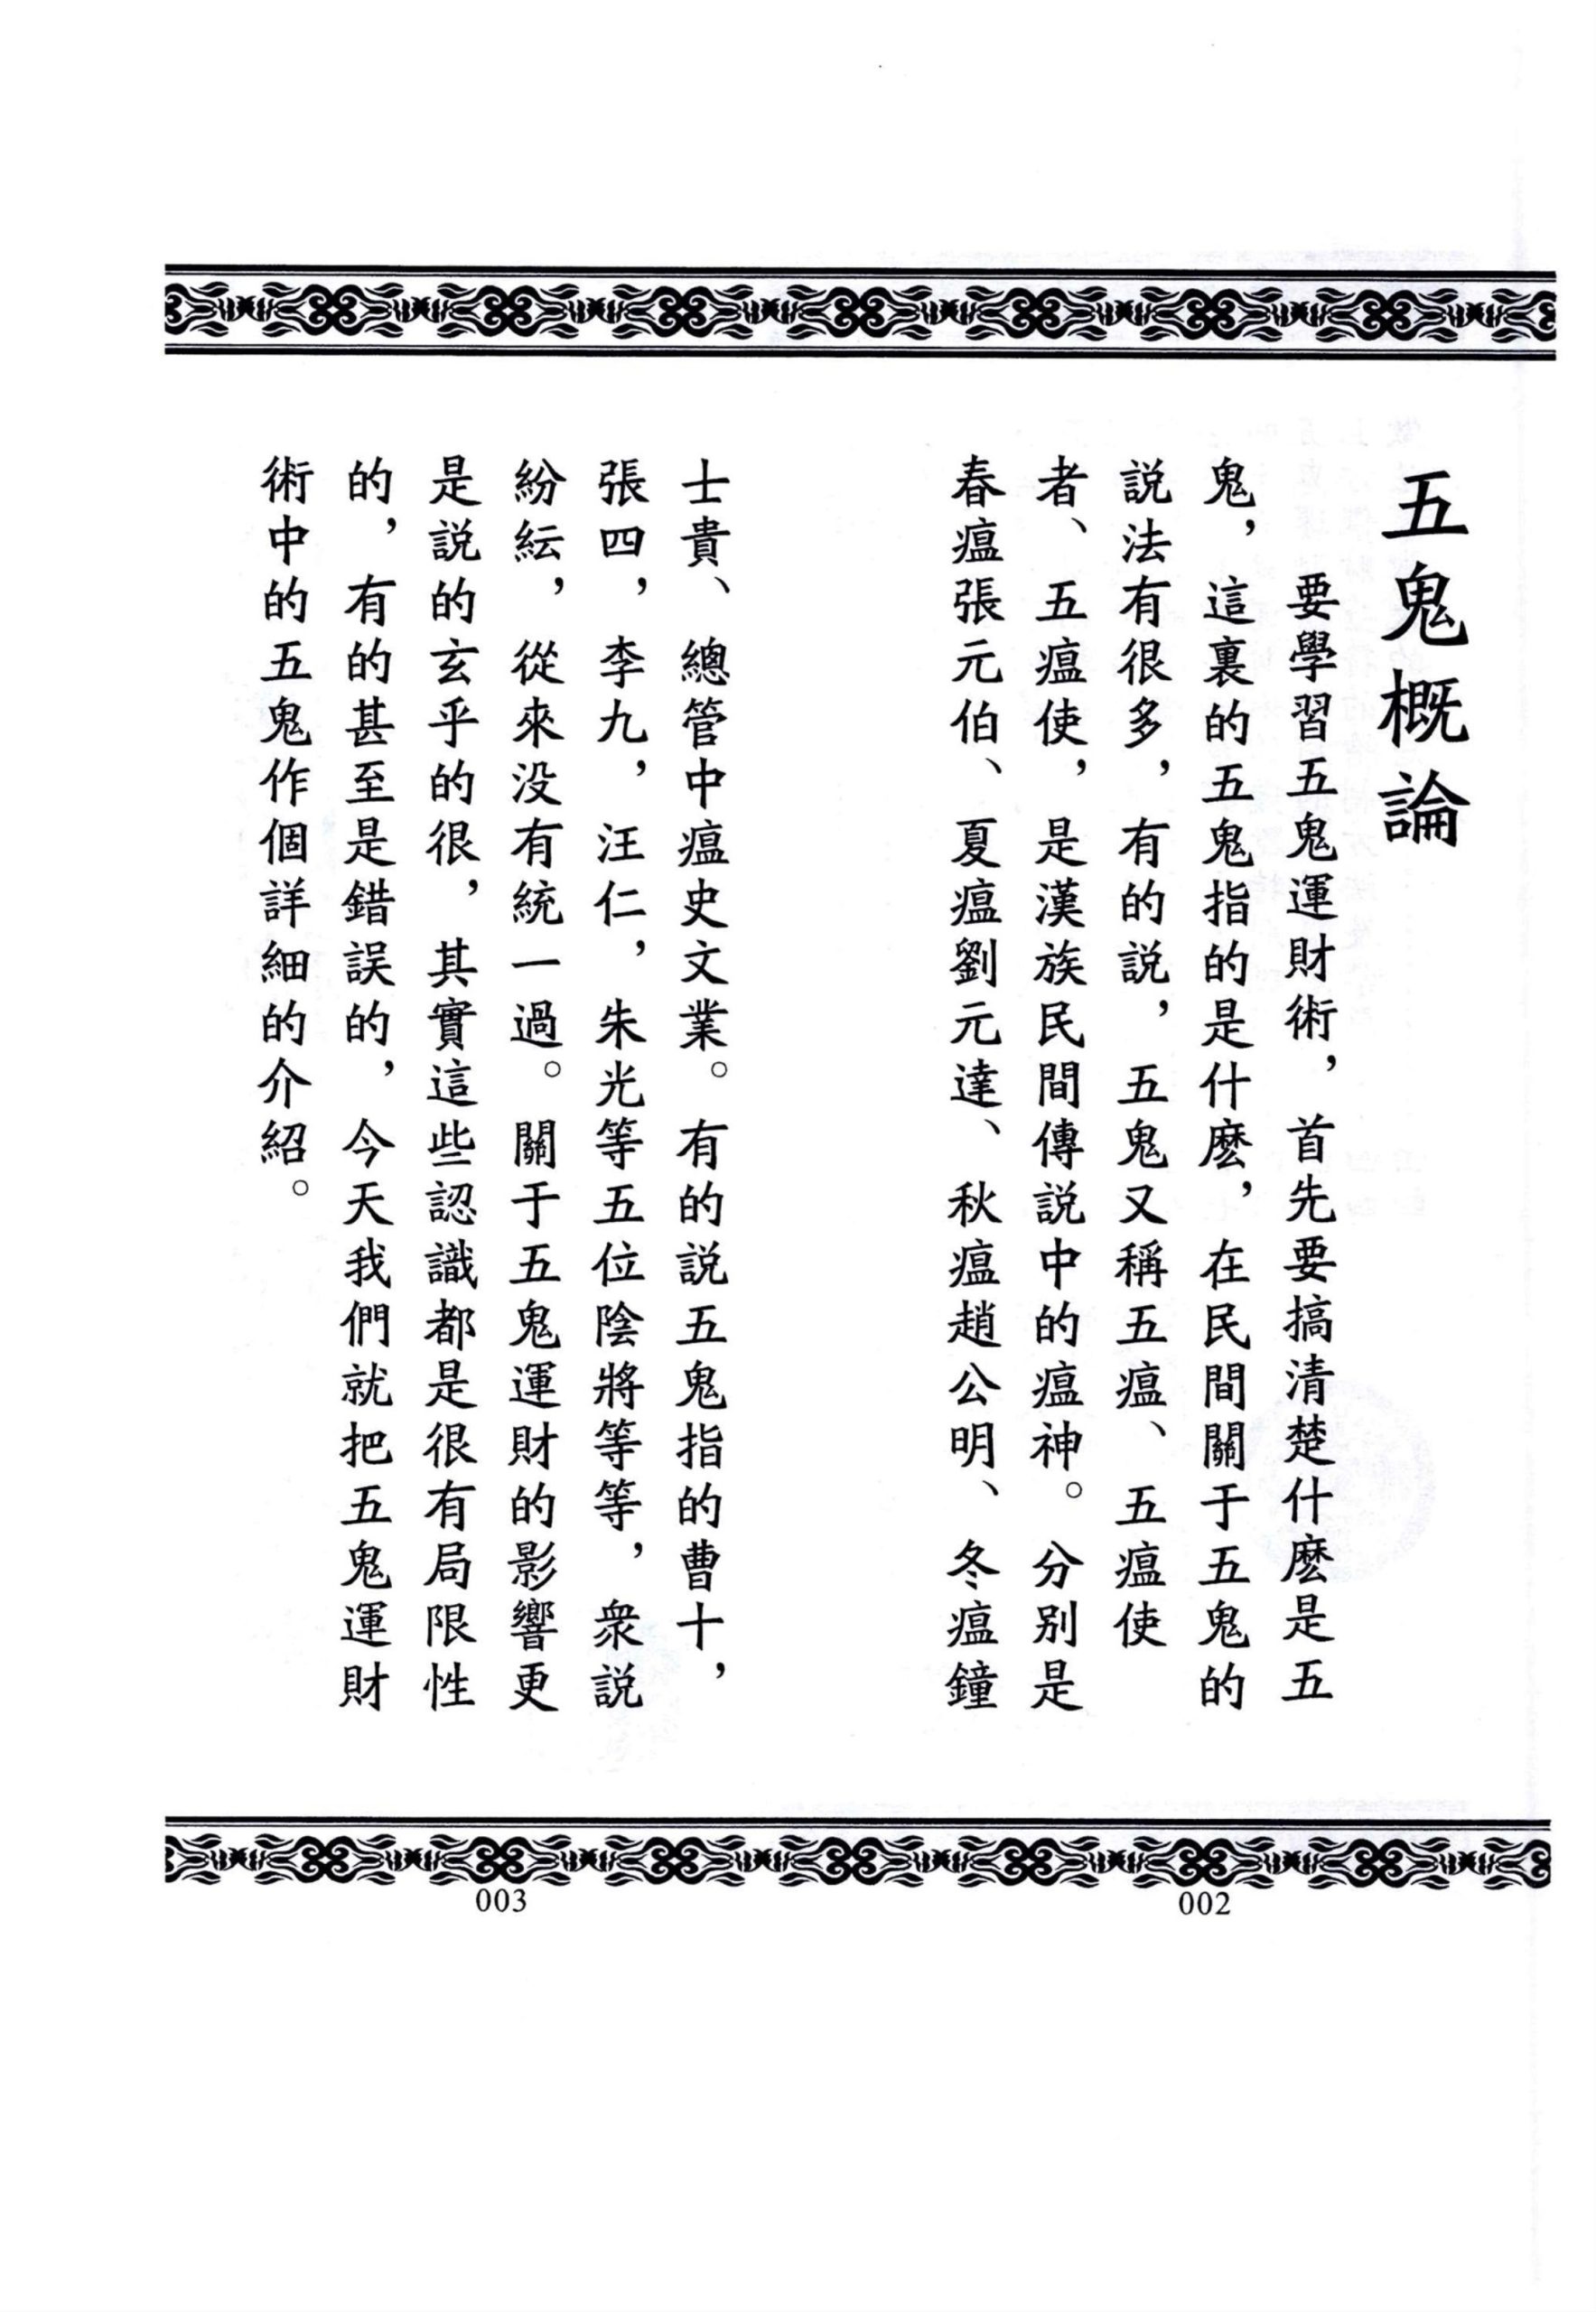 五鬼概論
要學習五鬼運財術，首先要搞清楚什麽是五
鬼，這裏的五鬼指的是什麽，在民間關于五鬼的
説法有很多，有的説，五鬼又稱五瘟、五瘟使
者、五瘟使，是漢族民間傳説中的瘟神。分别是
春瘟張元伯、夏瘟劉元達、秋瘟趙公明、冬瘟鐘
002
士貴、總管中瘟史文業。有的説五鬼指的曹十，
張四，李九，汪仁，朱光等五位陰將等等，衆説
紛紜，從來没有統一過。關于五鬼運財的影響更
是説的玄乎的很，其實這些認識都是很有局限性
的，有的甚至是錯誤的，今天我們就把五鬼運財
術中的五鬼作個詳細的介紹。
003